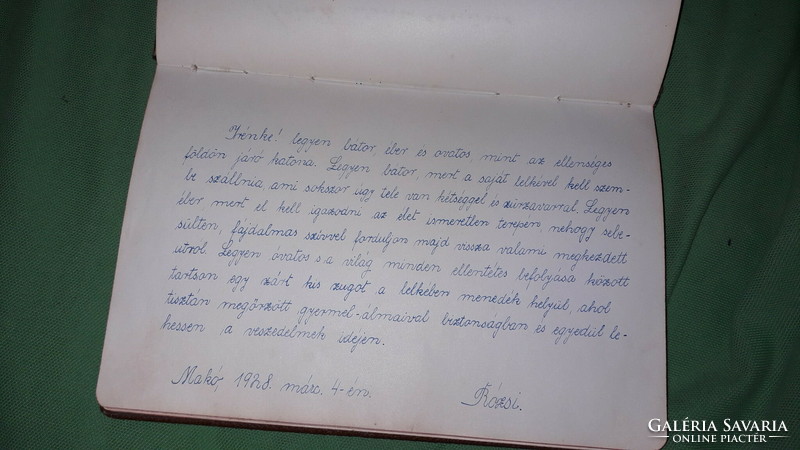 Irénke! legyen bátor, éber és ovatos, mint az ellenséges
földön járó katona. Legyen bátor, mert a saját lelkével kell szem-
be szállnia, ami sokszor úgy tele van kétséggel és zűrzavarral. Legyen
éber mert el kell igazodni az élet ismeretlen terepén, nehogy sebe-
sülten, fájdalmas szívvel forduljon majd vissza valami megkezdett
utról. Legyen ovatos s a világ minden ellentétes befolyása között
tartson egy zárt kis zugot a lelkében menedék helyül, ahol
tisztán megőrzött gyermek-álmaival biztonságban és egyedül le-
hessen a veszedelmek idején.
Makó, 1928. márc. 4-én.
Rózsi.
GALÉRIA SAVARIA
ONLINE PIACTÉR